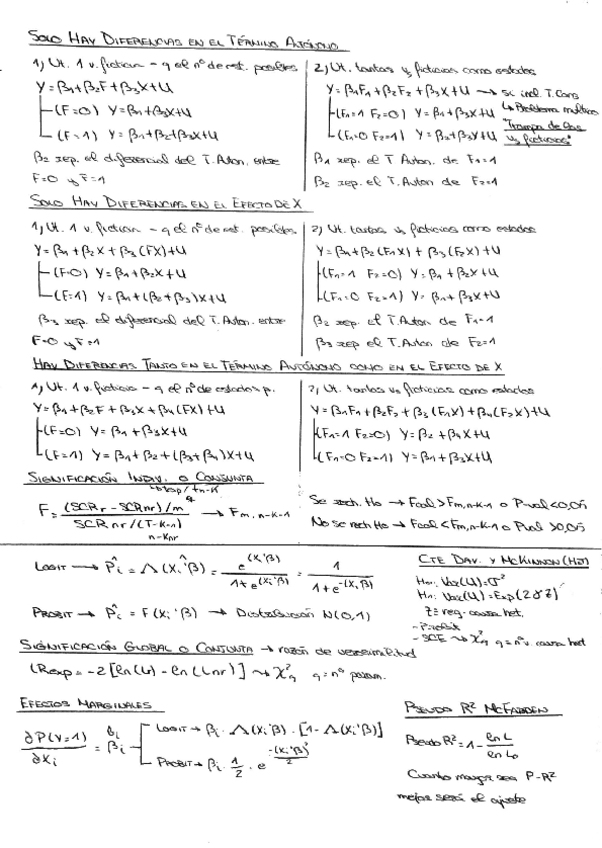 SOLO HAY DIFERENCIAS EN EL TÉRMINO AUTÓNOMO
1) Ut. 1 v. fiction - q el nº de est. posibles
Y = β1 + β2F + β3X + U
(F=0) Y = β1 + β3X + U
(F=1) Y = β1 + β2 + β3X + U
β2 rep. el diferencial del T. Auton. entre
F=0 y F=1
2) Ut. tantas v. ficticias como estados
Y = β1F1 + β2F2 + β3X + U → si incl. T. Cons
↳ Problema multico
(F1=1 F2=0) Y = β1 + β3X + U
"Trampa de las
(F1=0 F2=1) Y = β2 + β3X + U
vs ficticias"
β1 rep. el T. Auton. de F1=1
β2 rep. el T. Auton. de F2=1
SOLO HAY DIFERENCIAS EN EL EFECTO DE X
1) Ut. 1 v. fiction - q el nº de est. posibles
Y = β1 + β2X + β3(FX) + U
(F=0) Y = β1 + β2X + U
(F=1) Y = β1 + (β2 + β3)X + U
β3 rep. el diferencial del T. Auton. entre
F=0 y F=1
2) Ut. tantas vs ficticias como estados
Y = β1 + β2(F1X) + β3(F2X) + U
(F1=1 F2=0) Y = β1 + β2X + U
(F1=0 F2=1) Y = β1 + β3X + U
β2 rep. el T. Auton. de F1=1
β3 rep el T. Auton. de F2=1
HAY DIFERENCIAS TANTO EN EL TÉRMINO AUTÓNOMO COMO EN EL EFECTO DE X
1) Ut. 1 v. ficticia - q el nº de estados p.
Y = β1 + β2F + β3X + β4(FX) + U
(F=0) Y = β1 + β3X + U
(F=1) Y = β1 + β2 + (β3 + β4)X + U
2) Ut. tantas vs ficticias como estados
Y = β1F1 + β2F2 + β3(F1X) + β4(F2X) + U
(F1=1 F2=0) Y = β2 + β4X + U
(F1=0 F2=1) Y = β1 + β3X + U
SIGNIFICACIÓN INDIV. O CONJUNTA
F = (SCRr - SCRnr)/m / SCRnr/(T-k-1) → Fm, n-k-1
q
n-knr
Se rech. Ho → Fcal > Fm,n-k-1 o P-val < 0,05
No se rech Ho → Fcal < Fm,n-k-1 o Pval > 0,05
LOGIT → P̂i = Λ(Xi'β̂) = e^(Xi'β) / 1 + e^(Xi'β) = 1 / 1 + e^-(Xi'β)
PROBIT → P̂i = F(Xi'β) → Distribución N(0,1)
CTE DAV. Y MCKINNON (HET)
Ho: Var(U) = σ²
H1: Var(U) = Exp(2γZ)
Z = reg. causa het.
- Probit
- SCE → χ²q q = nº v. causa het
SIGNIFICACIÓN GLOBAL O CONJUNTA → razón de verosimilitud
LRexp = -2[ln(Lr) - ln(Lnr)] → χ²q q = nº param.
EFECTOS MARGINALES
∂P(Y=1) / ∂Xi = βi
LOGIT → βi · Λ(Xi'β) · [1 - Λ(Xi'β)]
PROBIT → βi · 1/2 · e^-(Xi'β)²/2
PSEUDO R² MCFADDEN
Pseudo R² = 1 - ln L / ln Lo
Cuanto mayor sea P-R²
mejor será el ajuste